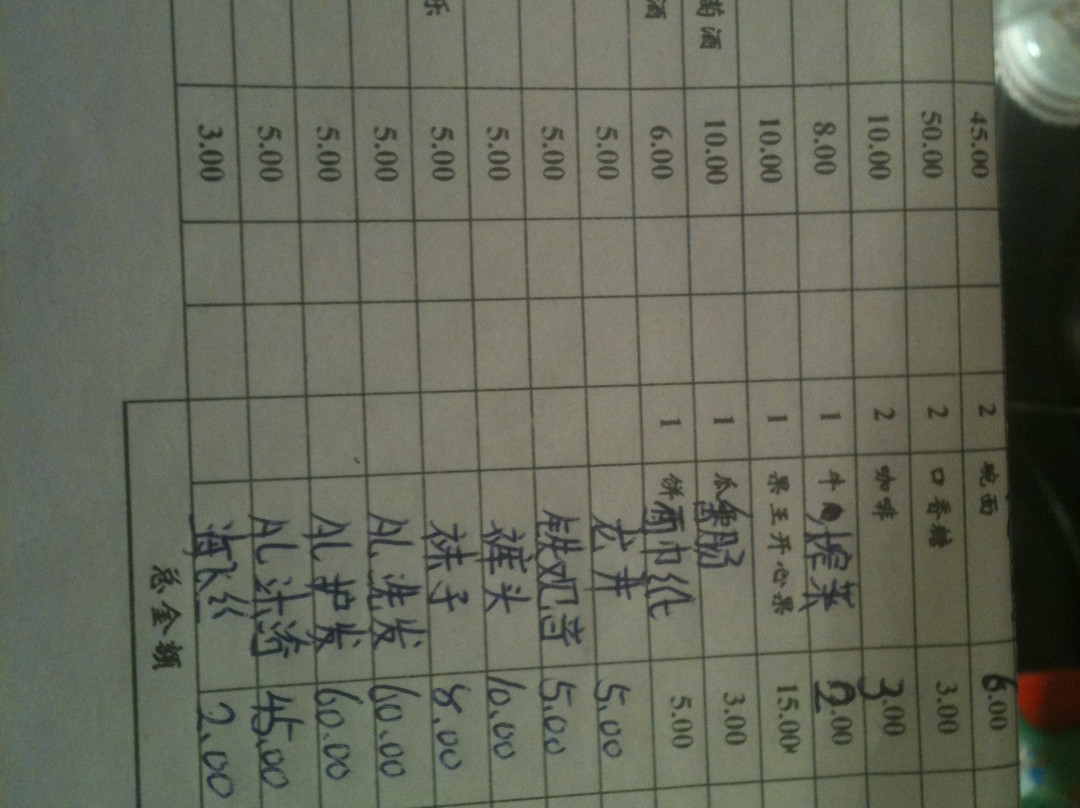 45.00 2 碗面 6.00
50.00 2 口香糖 3.00
10.00 2 咖啡 3.00
8.00 1 牛 榨菜 2.00
10.00 1 果王开心果 15.00
萄酒 10.00 1 瓜 香肠 3.00
酒 6.00 1 饼 面巾纸 5.00
5.00 龙井 5.00
5.00 铁观音 5.00
5.00 裤头 10.00
乐 5.00 袜子 8.00
5.00 AL洗发 60.00
5.00 AL护发 60.00
5.00 AL沐浴 45.00
3.00 海飞丝 2.00
总金额